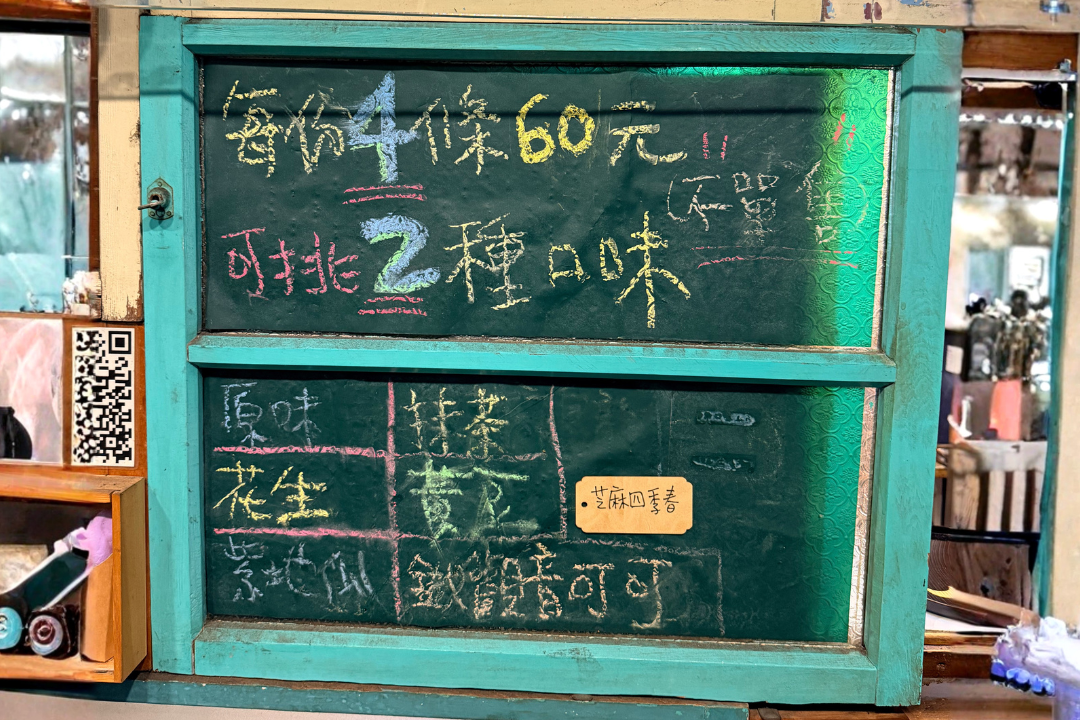 每份4條60元
可挑2種口味
原味
抹茶
花生
黃豆
芝麻四季春
紫地瓜
可可